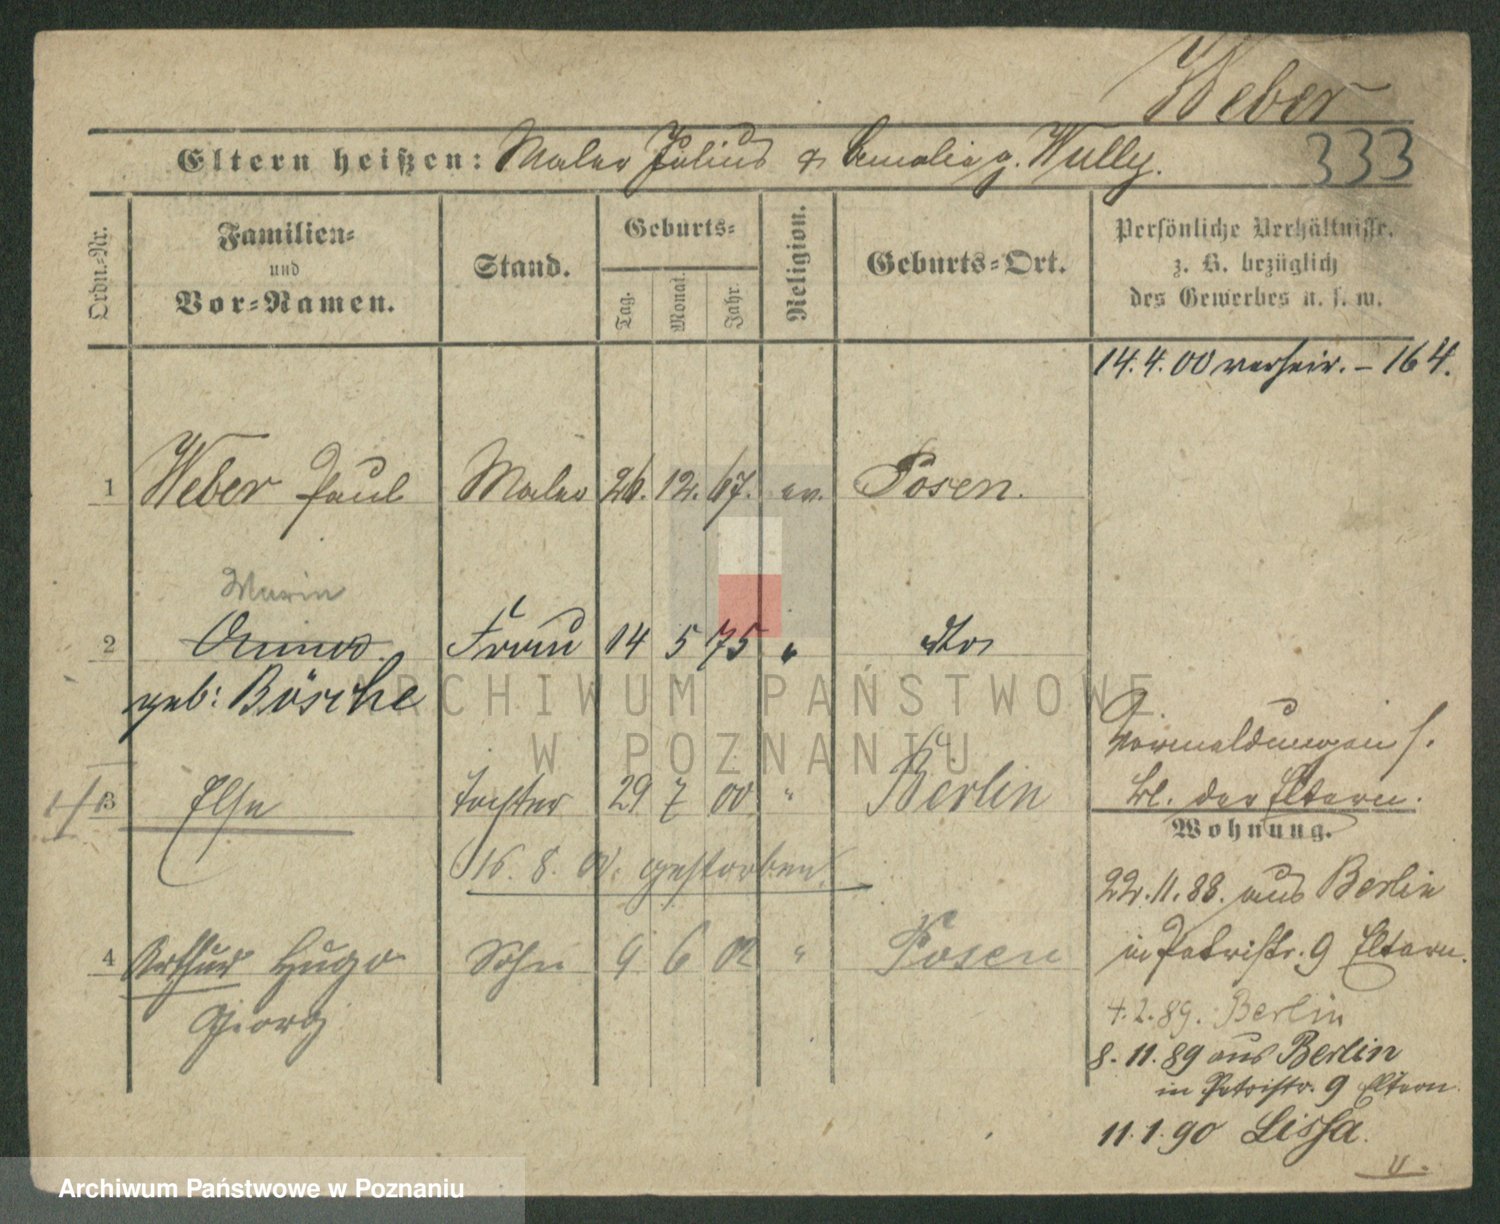 Weber
333
Eltern heißen: Maler Julius & Amalie g. Wully.
Ordn.-Nr.
Familien-
und
Vor-Namen.
Stand.
Geburts-
Tag.
Monat.
Jahr.
Religion.
Geburts-Ort.
Persönliche Verhältnisse,
z. B. bezüglich
des Gewerbes u. s. w.
14.4.00 verheir. – 164.
1 Weber Paul Maler 26. 12. 67. ev. Posen.
Marie
2 Anna Frau 14 5 75 " dto
geb: Bösche
Vormeldungen s.
bl. der Eltern.
3 Else Tochter 29 7 00 " Berlin
Wohnung.
16. 8. 00. gestorben.
22.11.88. aus Berlin
in Petristr. 9 Eltern.
4 Arthur Hugo Sohn 9 6 02 " Posen
Georg
4.2.89. Berlin
8.11.89 aus Berlin
in Petristr. 9 Eltern.
11.1.90 Lissa.
ARCHIWUM PAŃSTWOWE
W POZNANIU
Archiwum Państwowe w Poznaniu